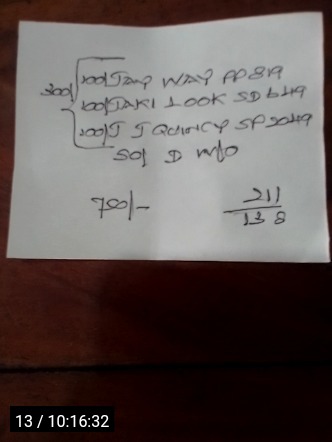 300/
100/ JAY WAY PP 819
100/ JAKI LOOK SD 649
100/ J J QUINCY SP 2049
50/ D W/O
750/-
211
13 8
13 / 10:16:32